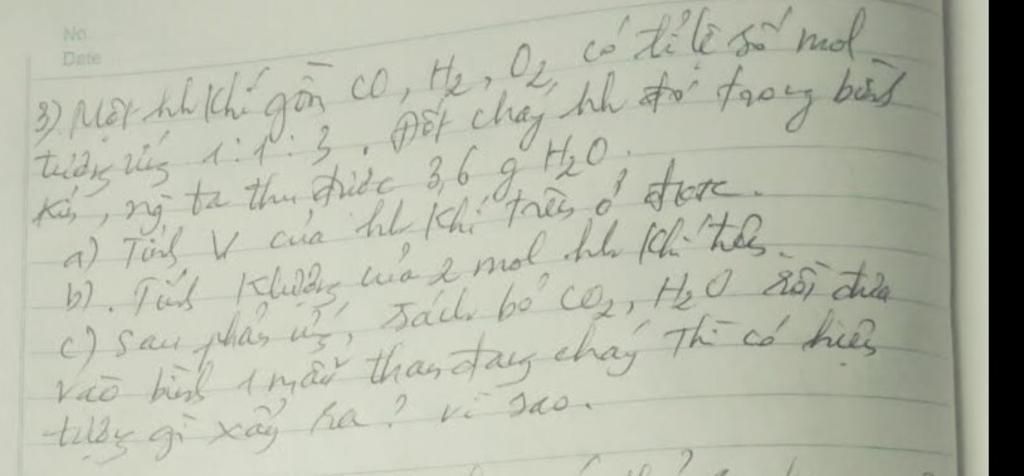 No
Date
3) Một hh khí gồm CO, H2, O2, có tỉ lệ số mol
tương ứng 1:1:3. Đốt cháy hh đó trong bình
kín, ng ta thu được 3,6 g H2O.
a) Tính V của hh khí trên ở đktc.
b). Tính khối lượng của 2 mol hh khí trên.
c) Sau phản ứng, tách bỏ CO2, H2O rồi đưa
vào bình 1 mẩu than đang cháy thì có hiện
tượng gì xảy ra? Vì sao.